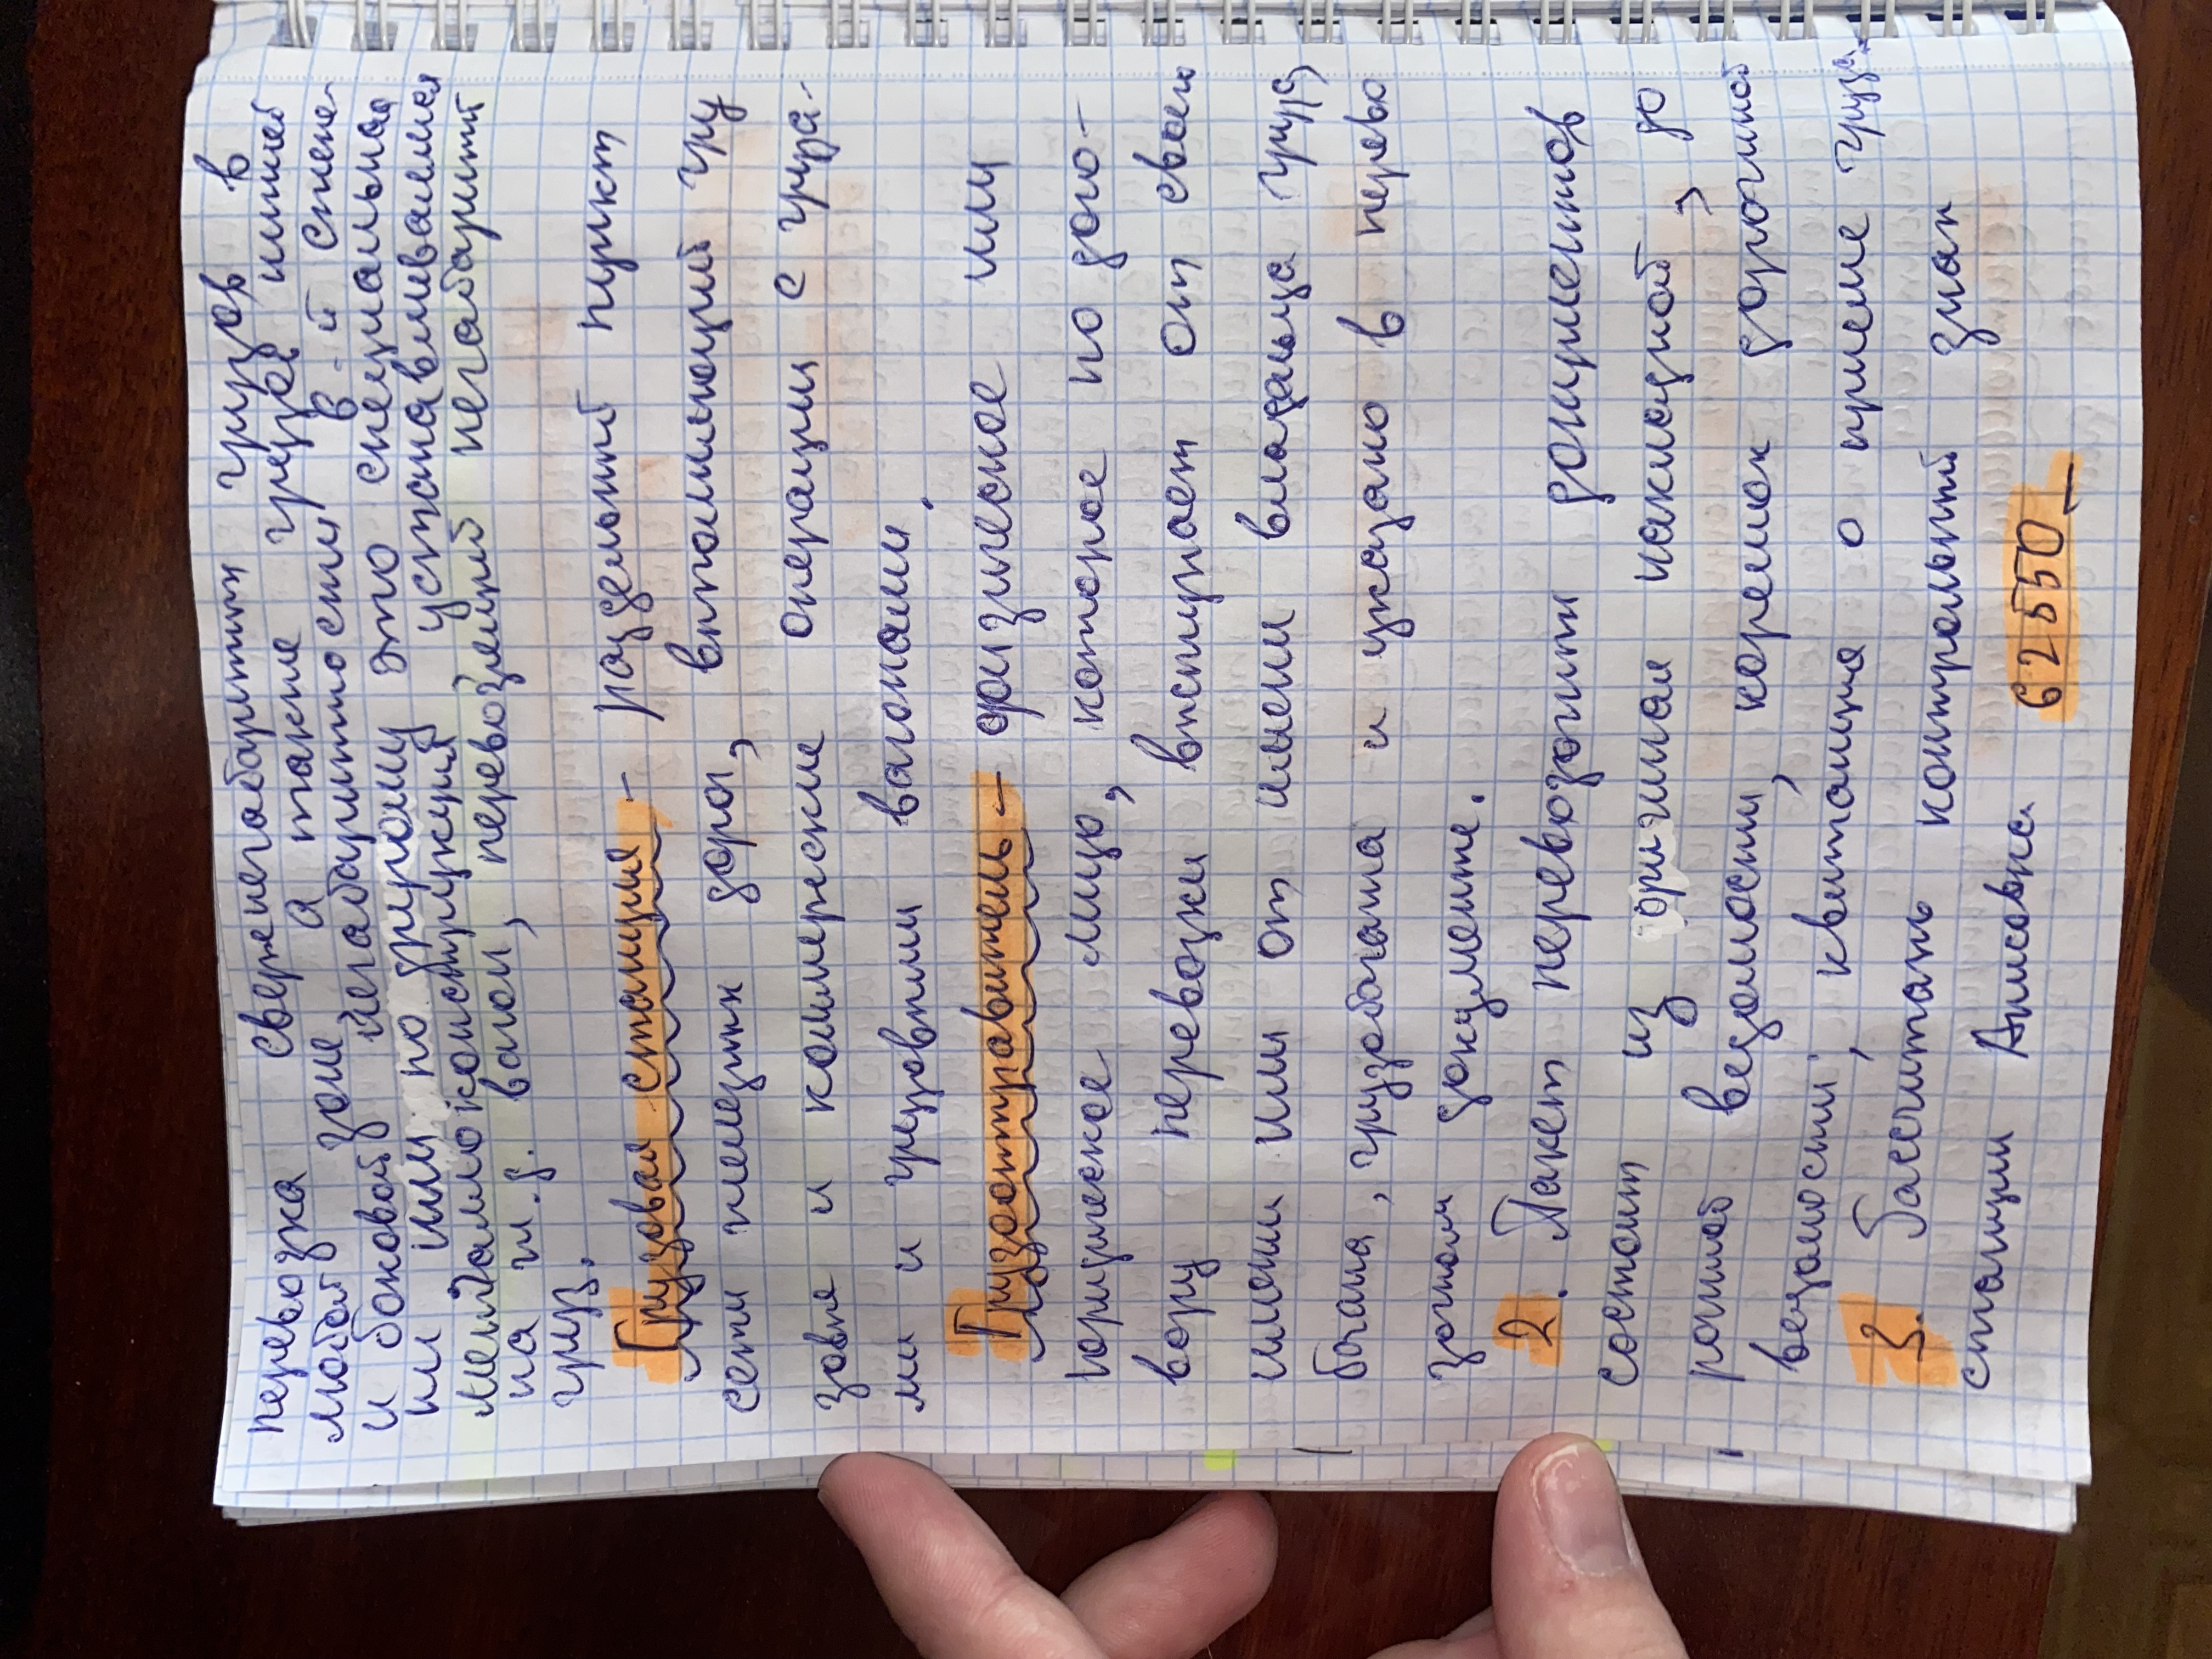 перевозка сверхнегабаритн грузов в
любой зоне а также грузов нижней
и боковой негабаритности в 6-й степе-
ни или по другому это специальная
металлоконструкция устанавливаемая
на ж.д. вагон, перевозящей негабаритн
груз.
Грузовая станция - раздельный пункт
сети железных дорог, выполняющий гру
зовые и коммерческие операции с груза-
ми и грузовыми вагонами.
Грузоотправитель - физическое или
юридическое лицо, которое по дого-
вору перевозки выступает от своего
имени или от имени владельца груза,
багажа, грузобагажа и указано в перево
зочном документе.
2. Пакет перевозочн документов
состоит из оригинала накладной, до
рожной ведомости, корешок дорожной
ведомости, квитанция о приеме груза.
3. Рассчитать контрольный знак
станции Анисовка 62550_